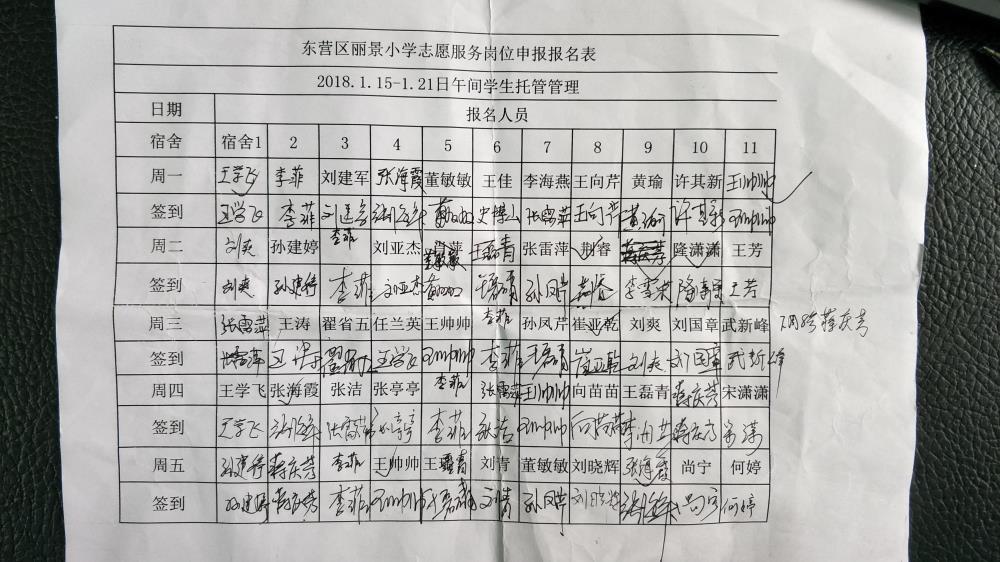 东营区丽景小学志愿服务岗位申报报名表
2018.1.15-1.21日午间学生托管管理
日期 报名人员
宿舍 宿舍1 2 3 4 5 6 7 8 9 10 11
周一 王学飞 李菲 刘建军 张海霞 董敏敏 王佳 李海燕 王向芹 黄瑜 许其新 王帅帅
签到 王学飞 李菲 刘建军 张海霞 史博山 张雷萍 王向芹 黄瑜 许其新 王帅帅
周二 刘爽 孙建婷 李菲 刘亚杰 董敏敏 王磊青 张雷萍 荆睿 蒋庆芳 隆潇潇 王芳
签到 刘爽 孙建婷 李菲 刘亚杰 孙凤芹 荆睿 王芳
周三 张雷萍 王涛 翟省五 任兰英 王帅帅 李菲 孙凤芹 崔亚乾 刘爽 刘国章 武新峰
签到 张雷萍 王学飞 王帅帅 李菲 崔亚乾 刘爽 刘国章 武新峰
周四 王学飞 张海霞 张洁 张亭亭 李菲 张雷萍 王帅帅 向苗苗 王磊青 蒋庆芳 宋潇潇
签到 王学飞 张海霞 李菲 张洁 王帅帅 向苗苗 蒋庆芳
周五 孙建婷 蒋庆芳 李菲 王帅帅 王磊青 刘青 董敏敏 刘晓辉 张海霞 尚宁 何婷
签到 孙建婷 蒋庆芳 李菲 王帅帅 刘青 孙凤芹 刘晓辉 张海霞 尚宁 何婷